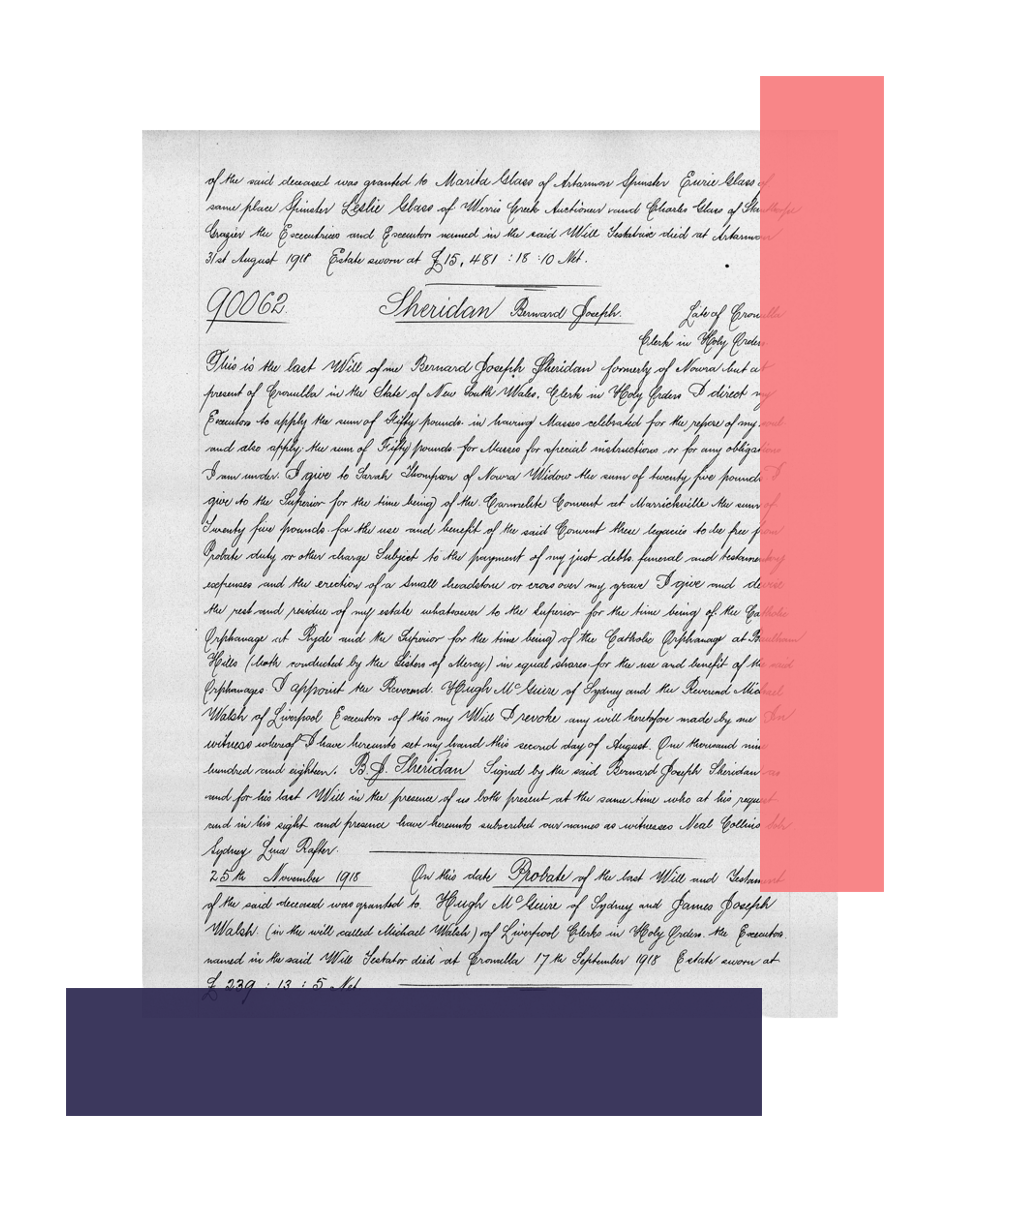 of the said deceased was granted to Marita Glass of Artarmon Spinster Eurie Glass of
same place Spinster Leslie Glass of Werris Creek Auctioneer and Charles Glass of Stanthorpe
Grazier the Executrices and Executors named in the said Will Testatrix died at Artarmon
31st August 1918 Estate sworn at £15,481:18:10 Net.
90062. Sheridan Bernard Joseph. Late of Cronulla
Clerk in Holy Orders
This is the last Will of me Bernard Joseph Sheridan formerly of Nowra but at
present of Cronulla in the State of New South Wales. Clerk in Holy Orders I direct my
Executors to apply the sum of Fifty pounds in having Masses celebrated for the repose of my soul
and also apply the sum of Fifty pounds for Masses for special instructions or for any obligations
I am under. I give to Sarah Thompson of Nowra Widow the sum of twenty five pounds I
give to the Superior for the time being of the Carmelite Convent at Marrickville the sum of
Twenty five pounds for the use and benefit of the said Convent these legacies to be free from
Probate duty or other charge Subject to the payment of my just debts funeral and testamentary
expenses and the erection of a small headstone or cross over my grave I give and devise
the rest and residue of my estate whatsoever to the Superior for the time being of the Catholic
Orphanage at Ryde and the Superior for the time being of the Catholic Orphanage at Baulkham
Hills (both conducted by the Sisters of Mercy) in equal shares for the use and benefit of the said
Orphanages I appoint the Reverend Hugh McGuire of Sydney and the Reverend Michael
Walsh of Liverpool Executors of this my Will I revoke any will heretofore made by me In
witness whereof I have hereunto set my hand this second day of August. One thousand nine
hundred and eighteen. B.J. Sheridan Signed by the said Bernard Joseph Sheridan as
and for his last Will in the presence of us both present at the same time who at his request
and in his sight and presence have hereunto subscribed our names as witnesses Neal Collins
Sydney Lina Rafter.
25th November 1918 On this date Probate of the last Will and Testament
of the said deceased was granted to Hugh McGuire of Sydney and James Joseph
Walsh (in the will called Michael Walsh) of Liverpool Clerks in Holy Orders the Executors
named in the said Will Testator died at Cronulla 17th September 1918 Estate sworn at
£239:13:5 Net